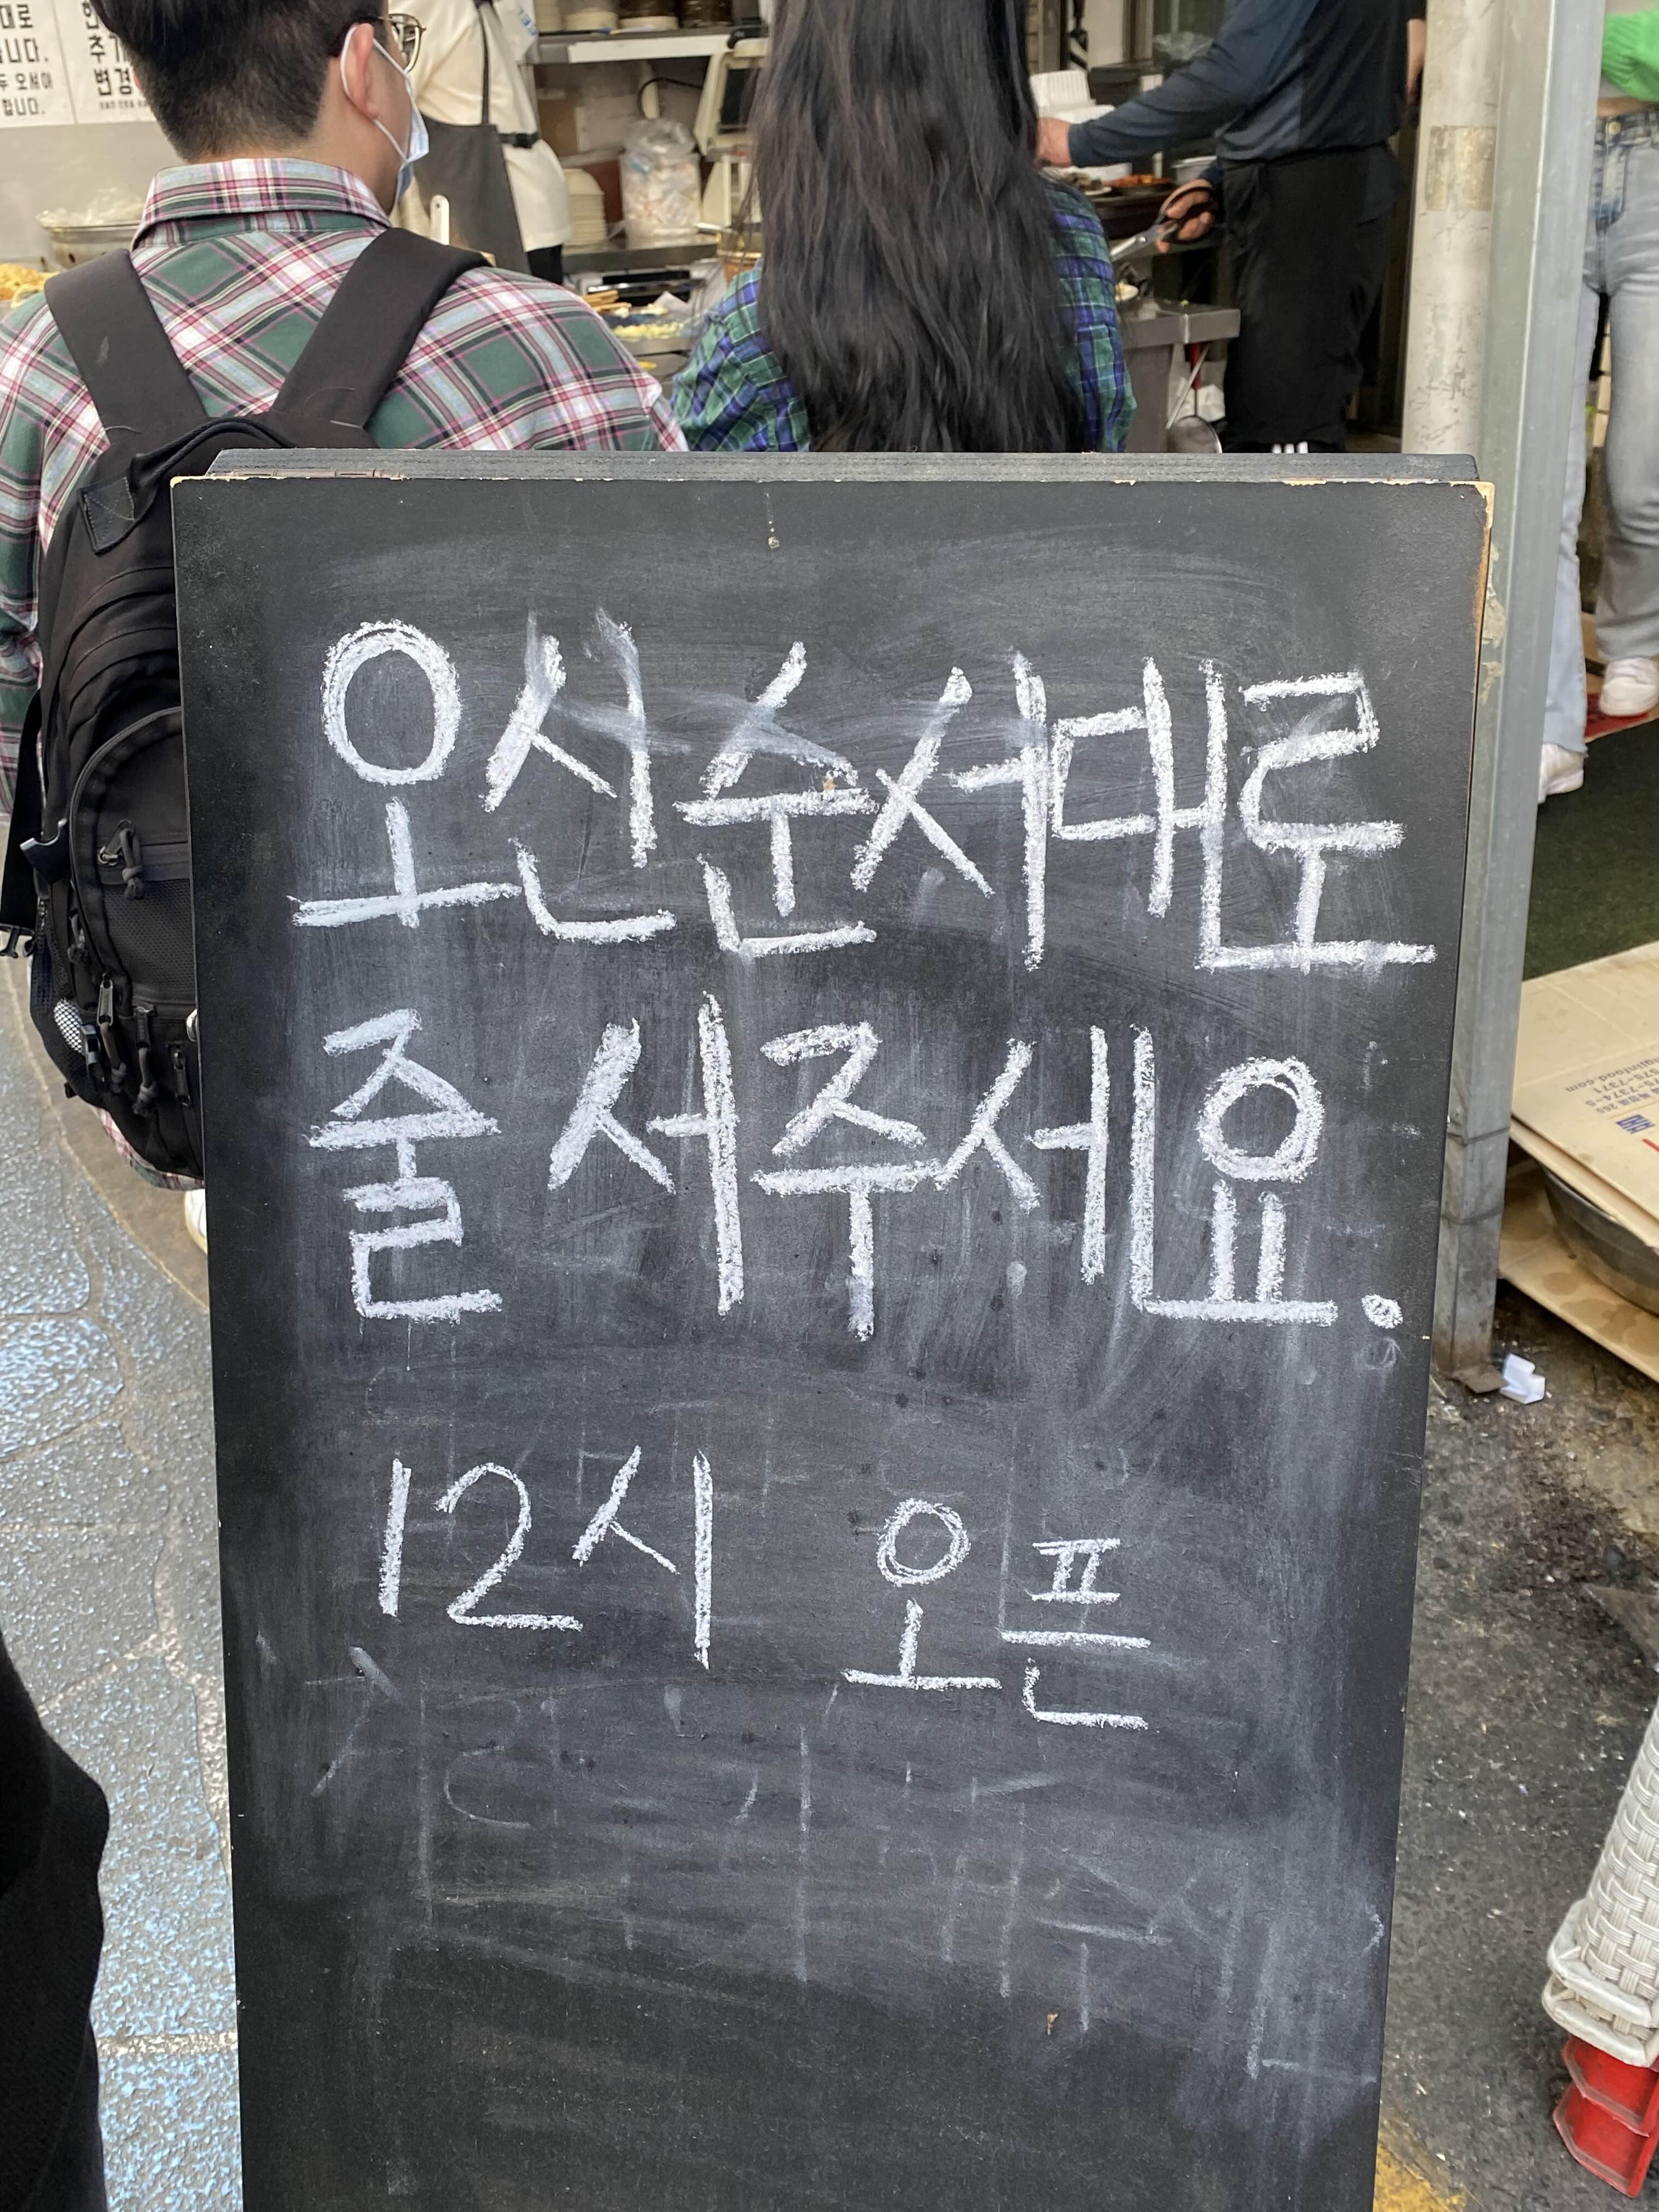 대로
니다.
두 오셔야
합니다.
변경
오신순서대로
줄 서주세요.
12시 오픈